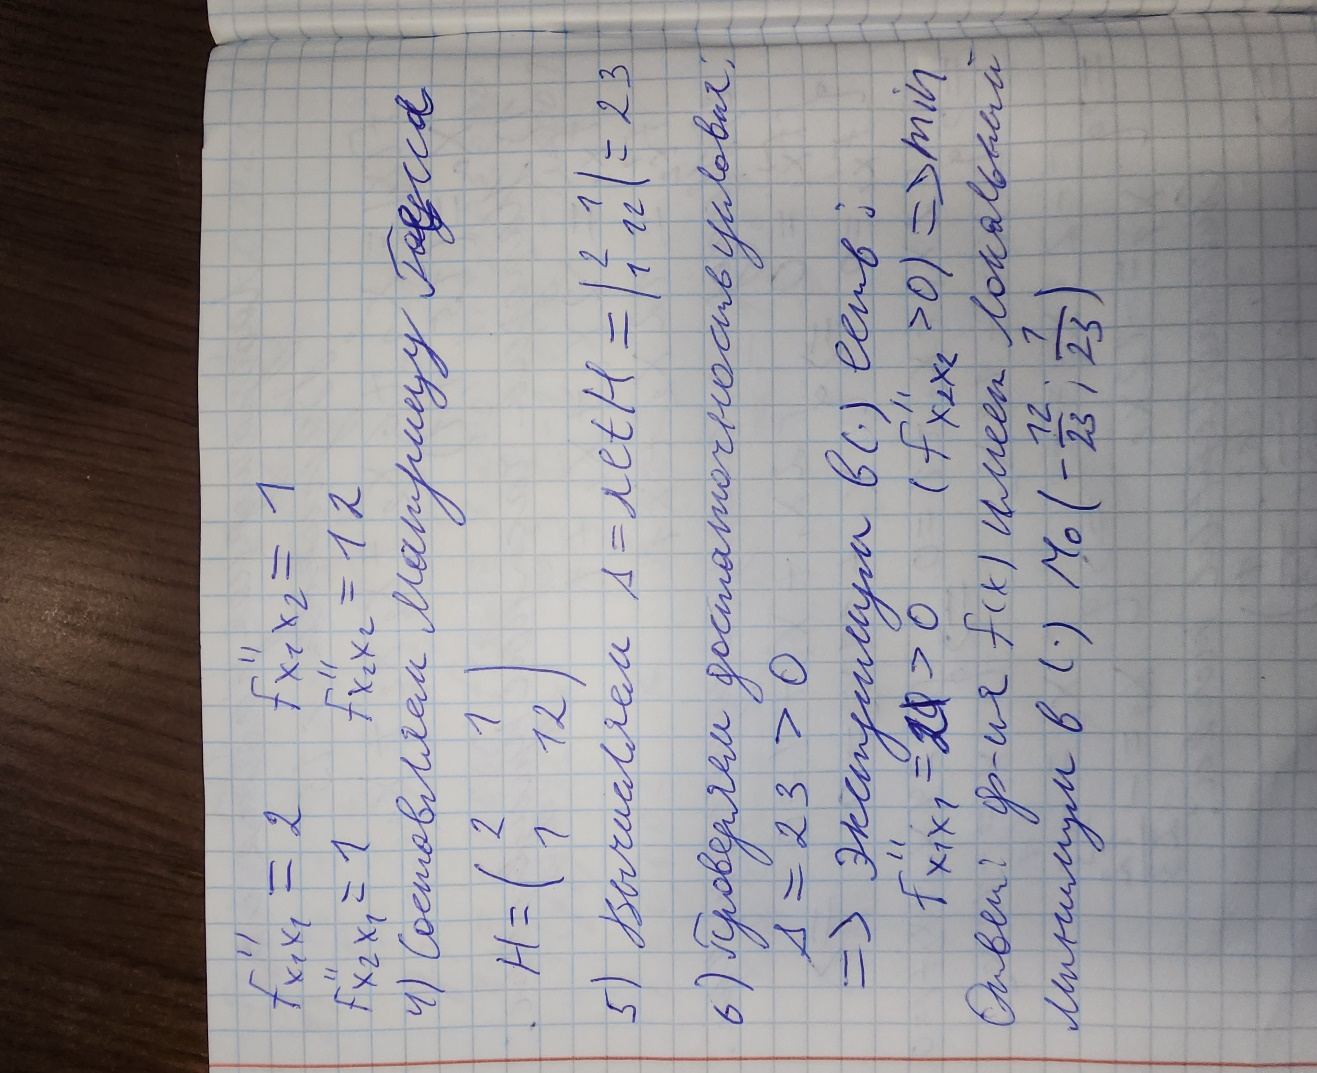 f''x₁x₁ = 2 f''x₁x₂ = 1
f''x₂x₁ = 1 f''x₂x₂ = 12
4) Составляем матрицу Гаусса
H = ( 2 1
1 12 )
5) Вычисляем Δ = det H = | 2 1
1 12 | = 23
6) Проверяем достаточность условия;
Δ = 23 > 0
=> экстремум в (·) есть;
f''x₁x₁ = 2 > 0 (f''x₂x₂ > 0) => min
Ответ: ф-ия f(x) имеет локальный
минимум в (·) M₀ (-12/23; 1/23)